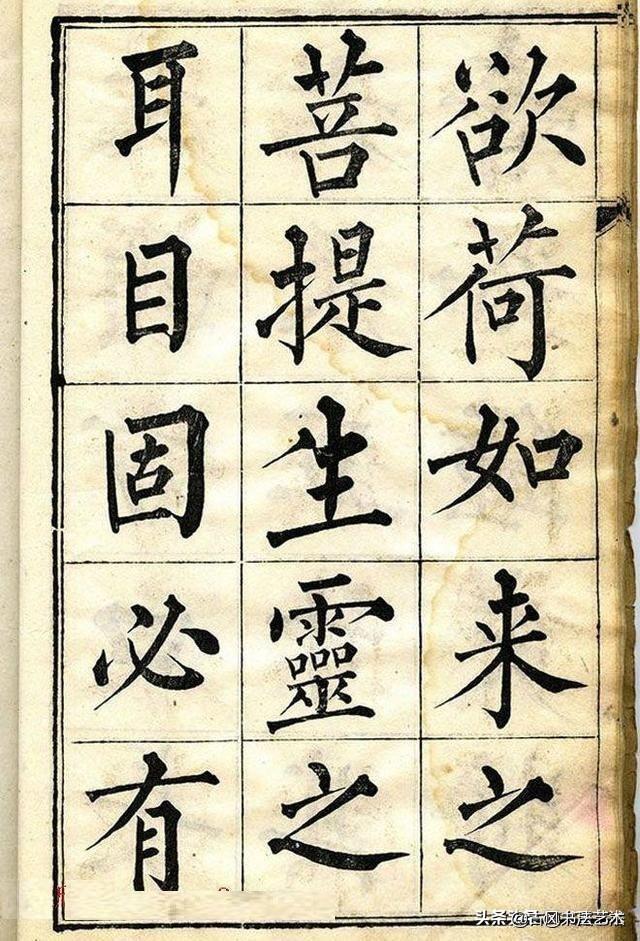 欲荷如来之
菩提生靈之
耳目固必有
头条@古风书法艺术